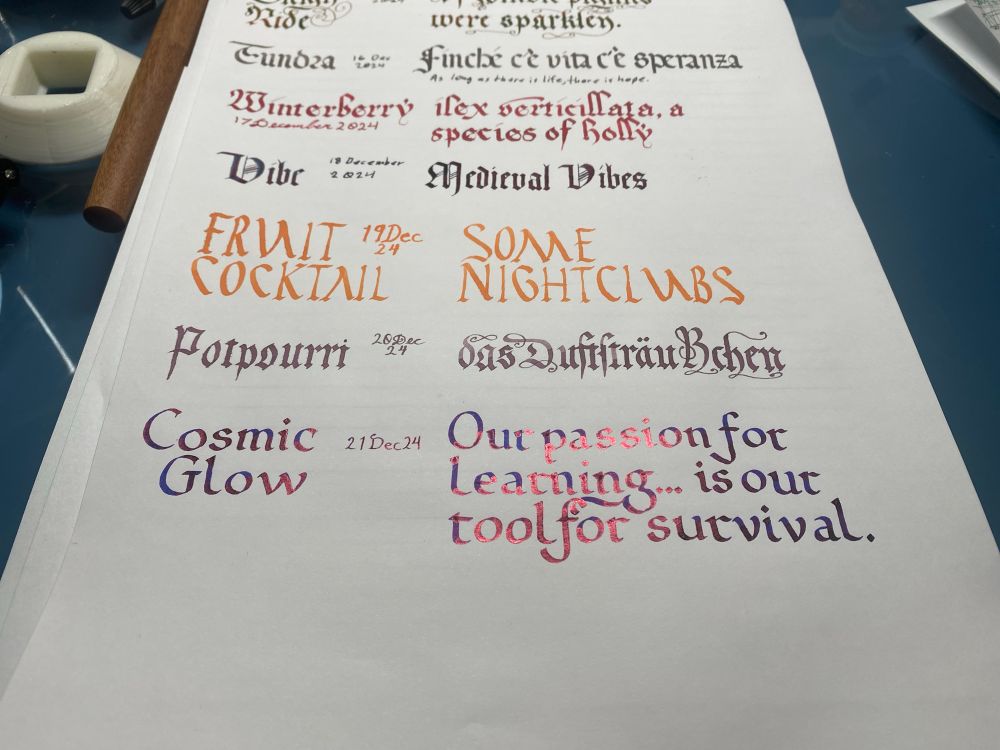 Ride
were sparkley.
Tundra 16 Dec 2024 Finché c'è vita c'è speranza
As long as there is life, there is hope.
Winterberry ilex verticillata, a
17 December 2024 species of holly
Vibe 18 December 2024 Medieval Vibes
FRUIT 19 Dec 24 SOME
COCKTAIL NIGHTCLUBS
Potpourri 20 Dec 24 das Duftsträußchen
Cosmic 21 Dec 24 Our passion for
Glow learning... is our
tool for survival.